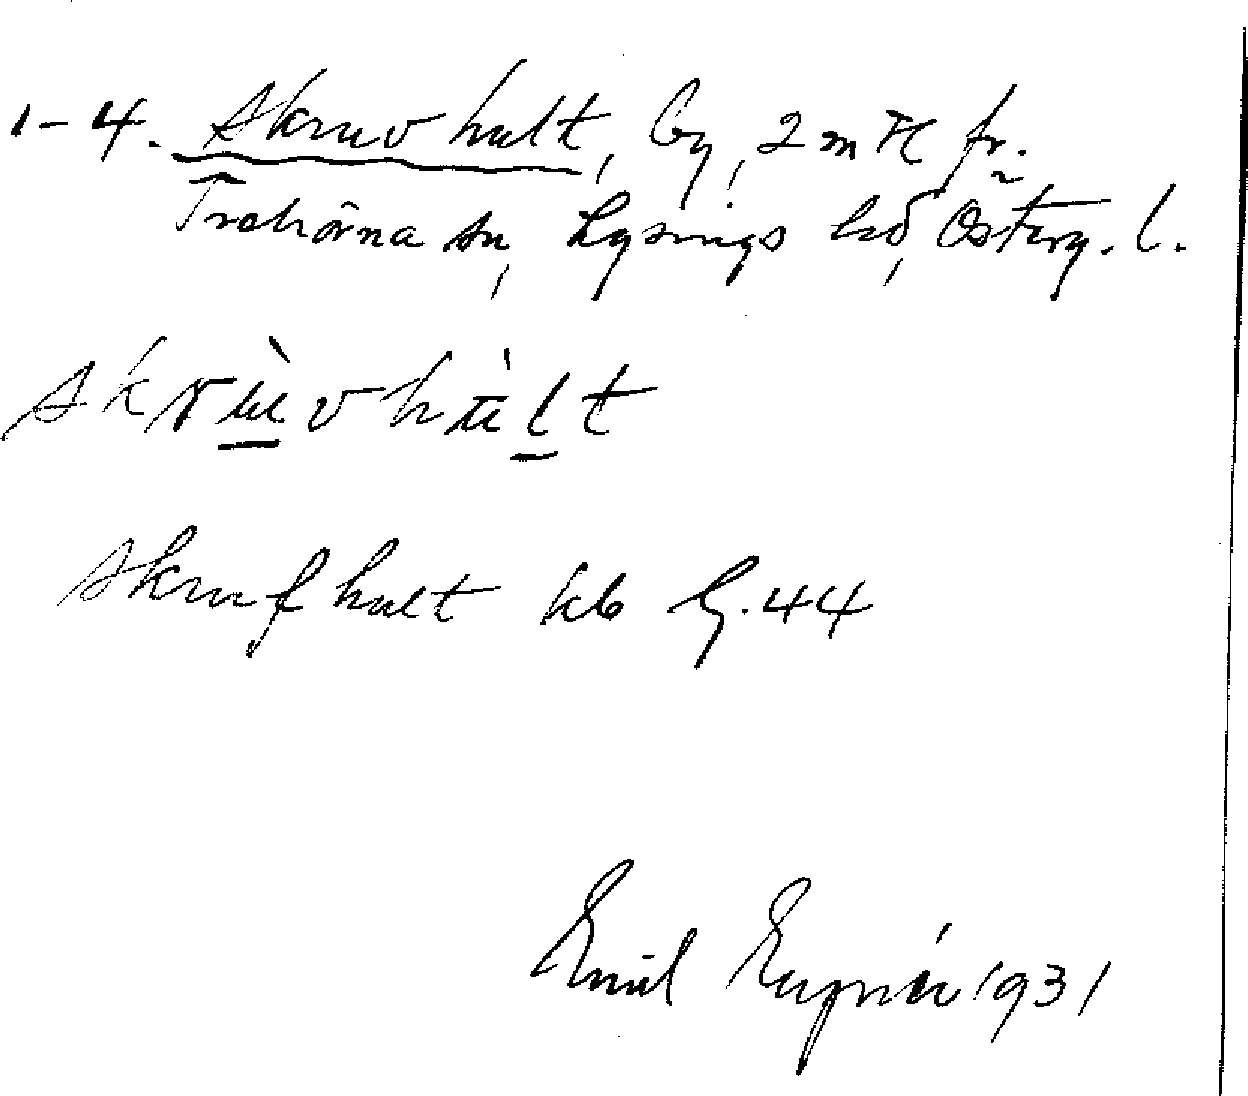 1-4. Skruvhult, by, 2 m N fr.
Trehörna sn, Lysings hd, Österg. l.
skruvhult
Skrufhult kb h. 44
Emil 1931